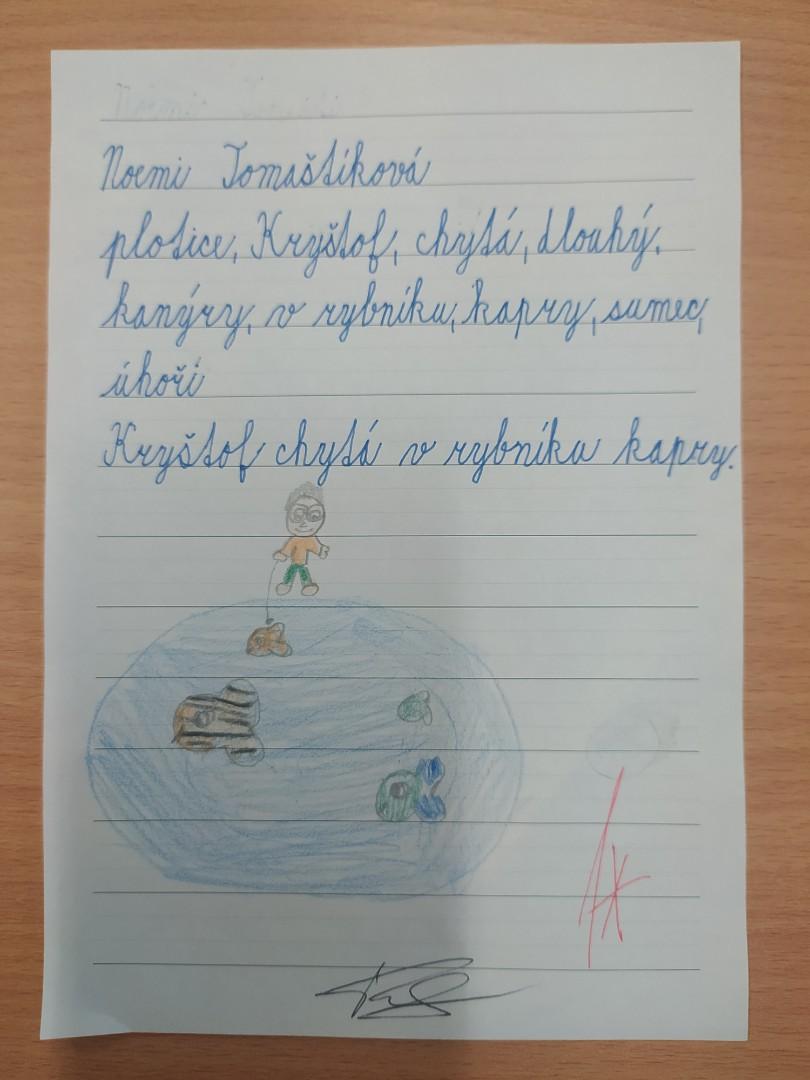 Noemi Tomaštíková
plotice, Kryštof, chytá, dlouhý.
kanýry, v rybníku, kapry, sumec,
úhoři
Kryštof chytá v rybníku kapry.